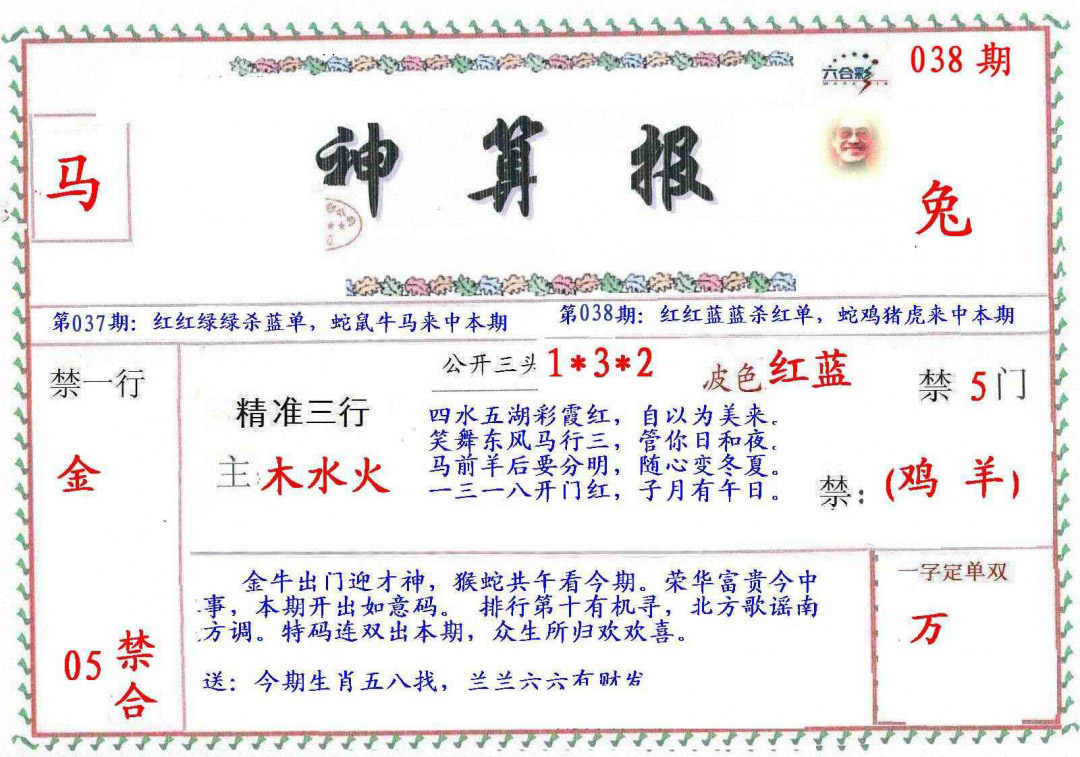 六合彩
038期
神算报
马
兔
第037期：红红绿绿杀蓝单，蛇鼠牛马来中本期
第038期：红红蓝蓝杀红单，蛇鸡猪虎来中本期
禁一行
金
05
禁合
精准三行
主:木水火
公开三头 1*3*2
波色红蓝
四水五湖彩霞红，自以为美来。
笑舞东风马行三，管你日和夜。
马前羊后要分明，随心变冬夏。
一三一八开门红，子月有午日。
禁5门
禁：(鸡 羊)
金牛出门迎才神，猴蛇共午看今期。荣华富贵今中
事，本期开出如意码。 排行第十有机寻，北方歌谣南
方调。特码连双出本期，众生所归欢欢喜。
送：今期生肖五八找，兰兰六六有财发
一字定单双
万